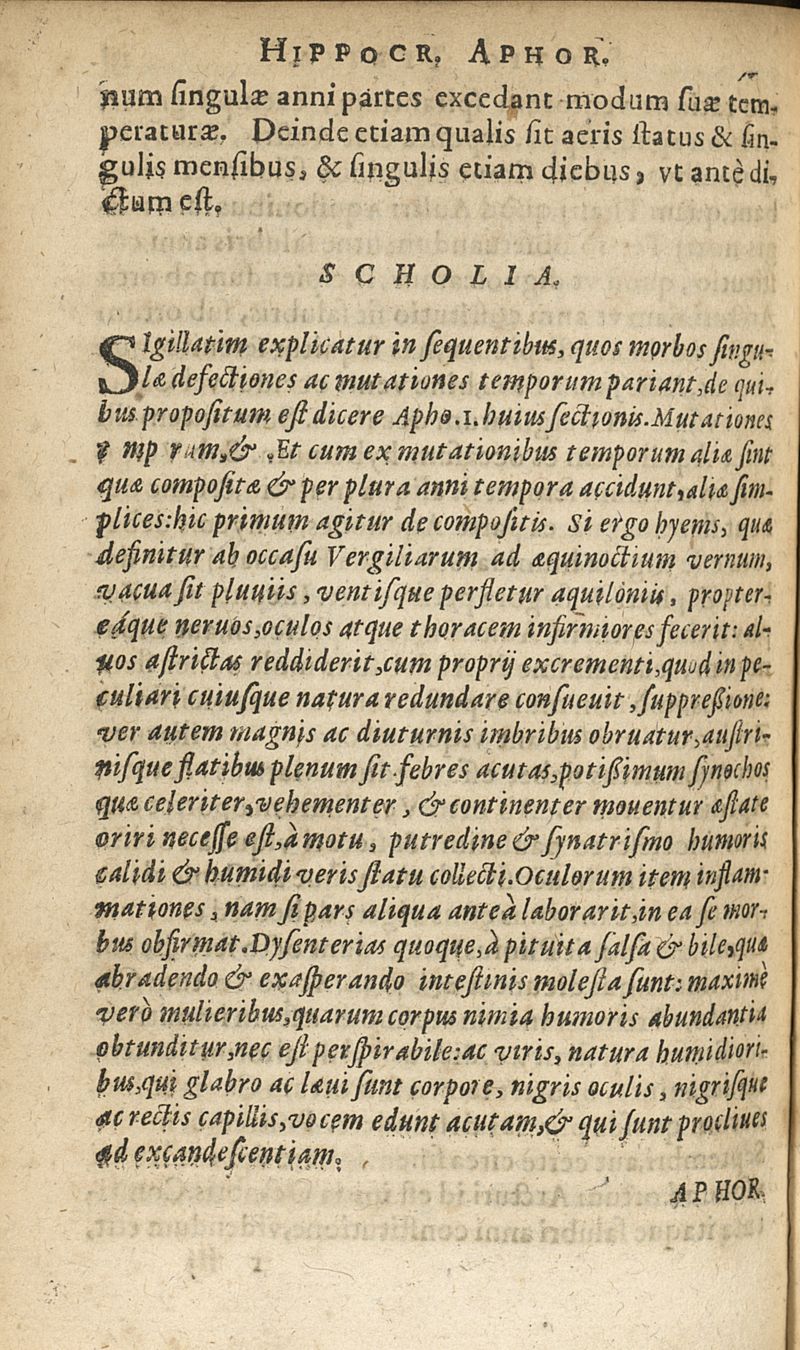 HIPPOCR. APHOR.
num singulæ anni partes excedant modum suæ tem-
peraturæ. Deinde etiam qualis sit aeris status & sin-
gulis mensibus, & singulis etiam diebus, vt antè di-
ctum est.
SCHOLIA.
SIgillatim explicatur in sequentibus, quos morbos singu-
læ defectiones ac mutationes temporum pariant, de qui-
bus propositum est dicere Apho.1. huius sectionis. Mutationes
& .Et cum ex mutationibus temporum aliæ sint
quæ compositæ & per plura anni tempora accidunt, aliæ sim-
plices: hic primum agitur de compositis. Si ergo hyems, quæ
definitur ab occasu Vergiliarum ad æquinoctium vernum,
vacua sit pluuiis, ventisque perfletur aquiloniis, propter-
eáque neruos, oculos atque thoracem infirmiores fecerit: al-
uos astrictas reddiderit, cum proprij excrementi, quod in pe-
culiari cuiusque natura redundare consueuit, suppreßione:
ver autem magnis ac diuturnis imbribus obruatur, austri-
nisque flatibus plenum sit. febres acutas, potißimum synochos
quæ celeriter, vehementer, & continenter mouentur æstate
oriri necesse est, à motu, putredine & synatrismo humoris
calidi & humidi veris statu collecti. Oculorum item inflam-
mationes, nam si pars aliqua anteà laborarit, in ea se mor-
bus obfirmat. Dysenterias quoque, à pituita salsa & bile, quæ
abradendo & exasperando intestinis molesta sunt: maximè
verò mulieribus, quarum corpus nimia humoris abundantia
obtunditur, nec est perspirabile: ac viris, natura humidiori-
bus, qui glabro ac læui sunt corpore, nigris oculis, nigrisque
ac rectis capillis, vocem edunt acutam, & qui sunt procliues
ad excandescentiam.
APHOR.